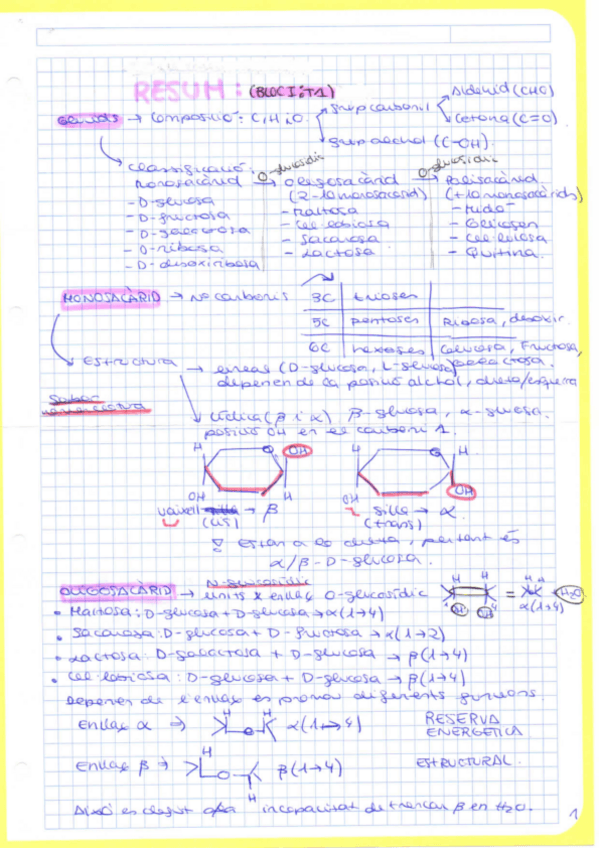 RESUM: (BLOC I: T1)
Glúcids → Composició: C, H, O.
Grup carbonil
Aldehid (CHO)
Cetona (C=O)
Grup alcohol (C-OH).
Classificació:
O-glucosídic
O-glucosídic
Monosacàrid → Oligosacàrid → Polisacàrid
(2-10 monosacàrid) (+10 monosacàrids)
- D-glucosa
- D-fructosa
- D-galactosa
- D-ribosa
- D-desoxiribosa
- Maltosa
- Cel·lobiosa
- Sacarosa
- Lactosa
- Midó
- Glicogen
- Cel·lulosa
- Quitina.
MONOSACÀRID → Nº carbonis
3C trioses
5C pentoses Ribosa, desoxir.
6C hexoses Glucosa, Fructosa,
galactosa.
Estructura → lineal (D-glucosa, L-glucosa)
depenen de la posició alcohol, dreta/esquerra
Saber
nomenclatura
Cíclica (β i α) β-glucosa, α-glucosa.
posició OH en el carboni 1.
H O OH OH H
H O H OH OH
vaixell → β
(cis)
silla → α
(trans)
Estan a la dreta, per tant és
α/β-D-glucosa.
N-glucosídic
OLIGOSACÀRID → units x enllaç O-glucosídic
H H OH OH = H H H2O
α(1→4)
• Maltosa: D-glucosa + D-glucosa → α(1→4)
• Sacarosa: D-glucosa + D-fructosa → α(1→2)
• Lactosa: D-galactosa + D-glucosa → β(1→4)
• Cel·lobiosa: D-glucosa + D-glucosa → β(1→4)
Depenen de l'enllaç es produu diferents funcions.
Enllaç α ⇒ H O H α(1→4) RESERVA
ENERGÈTICA
Enllaç β ⇒ H O H β(1→4) ESTRUCTURAL.
Això és degut a la incapacitat de trencar β en H2O.
1